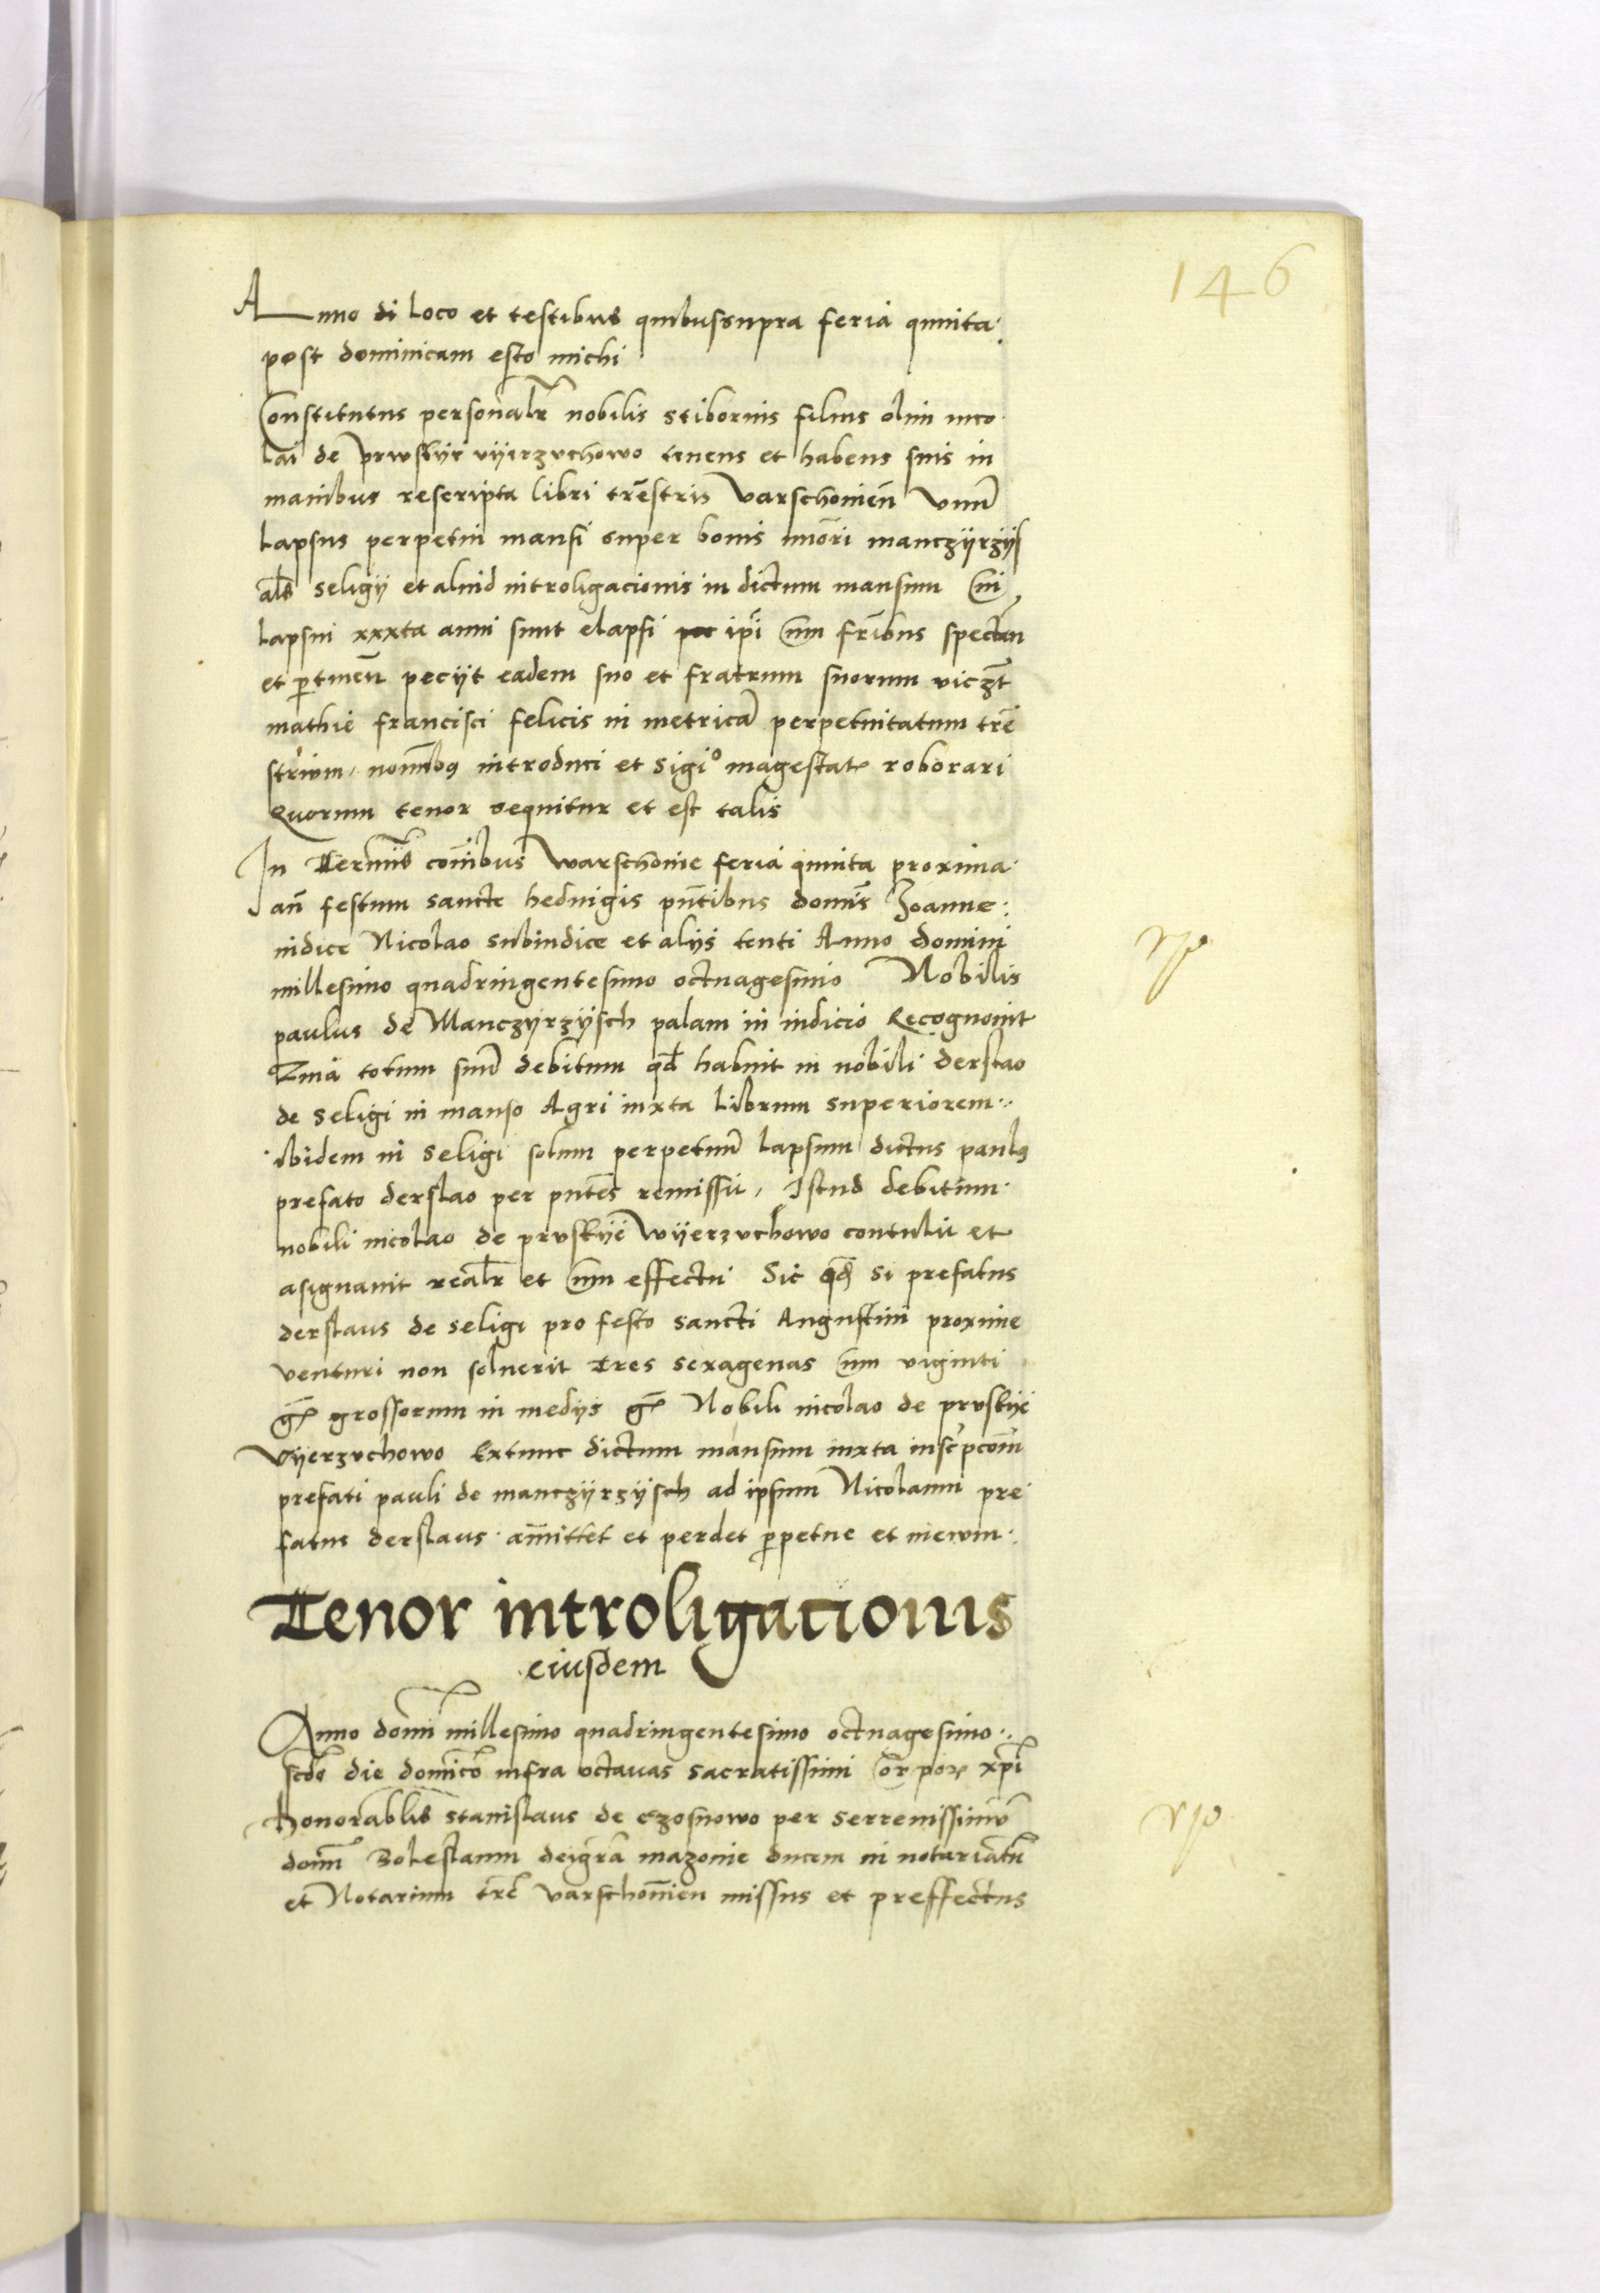 146
Anno di loco et testibus quibussupra feria quinta
post dominicam esto michi
Constitutus personalr nobilis Stibornis filius olim nico
lai de pruskije vijerzuchowo tenens et habens suis in
manibus rescripta libri trestris Varschonien Vnum
Lapsus perpetui mansi super bonis minori manczijrzijs
als Seligij et aliud introligacionis in dictum mansum Cui
lapsui xxxta anni sunt elapsi ipi cum fribus spectan
et ptinen peciit eadem suo et fratrum suorum viczt
mathie francisci felicis in metrica perpetuitatum tre
strium nomibus introduci et Sigio magestatis roborari
Quorum tenor sequitur et est talis
In Terminis comibus Warschonie feria quinta proxima
an festum sancte heduigis pntibus dominis Joanne
iudice Nicolao subiudice et alijs tenti Anno domini
millesimo quadringentesimo octuagesimo Nobilis
paulus de Manczijrzijsch palam in iudicio Recognouit
Qma totum suum debitum qd habuit in nobili derslao
de Seligi in manso Agri iuxta Librum superiorem
ibidem in Seligi solum perpetuum lapsum dictus paulus
prefato derslao per pntes remissit Istud debitum
nobili nicolao de pruskije Wijerzuchowo contulit et
asignauit realr et cum effectu Sic qd si prefatus
derslaus de seligi pro festo sancti Augustini proxime
venturi non soluerit tres sexagenas cum viginti
gr grossorum in medijs gr Nobili nicolao de pruskije
Vijerzuchowo Extunc dictum mansum iuxta inscripcom
prefati pauli de manczijrzijsch ad ipsum Nicolaum pre
fatus derslaus amittet et perdet ppetue et in ewm
Tenor introligacionis
eiusdem
Anno domi millesimo quadringentesimo octuagesimo
scdo die domico infra octauas sacratissimi Corporis xpi
honorablis Stanislaus de Czosnowo per Serrenissimu
domm Boleslaum deigra mazouie ducem in notariatu
et Notarium tre varschonien missus et preffectus